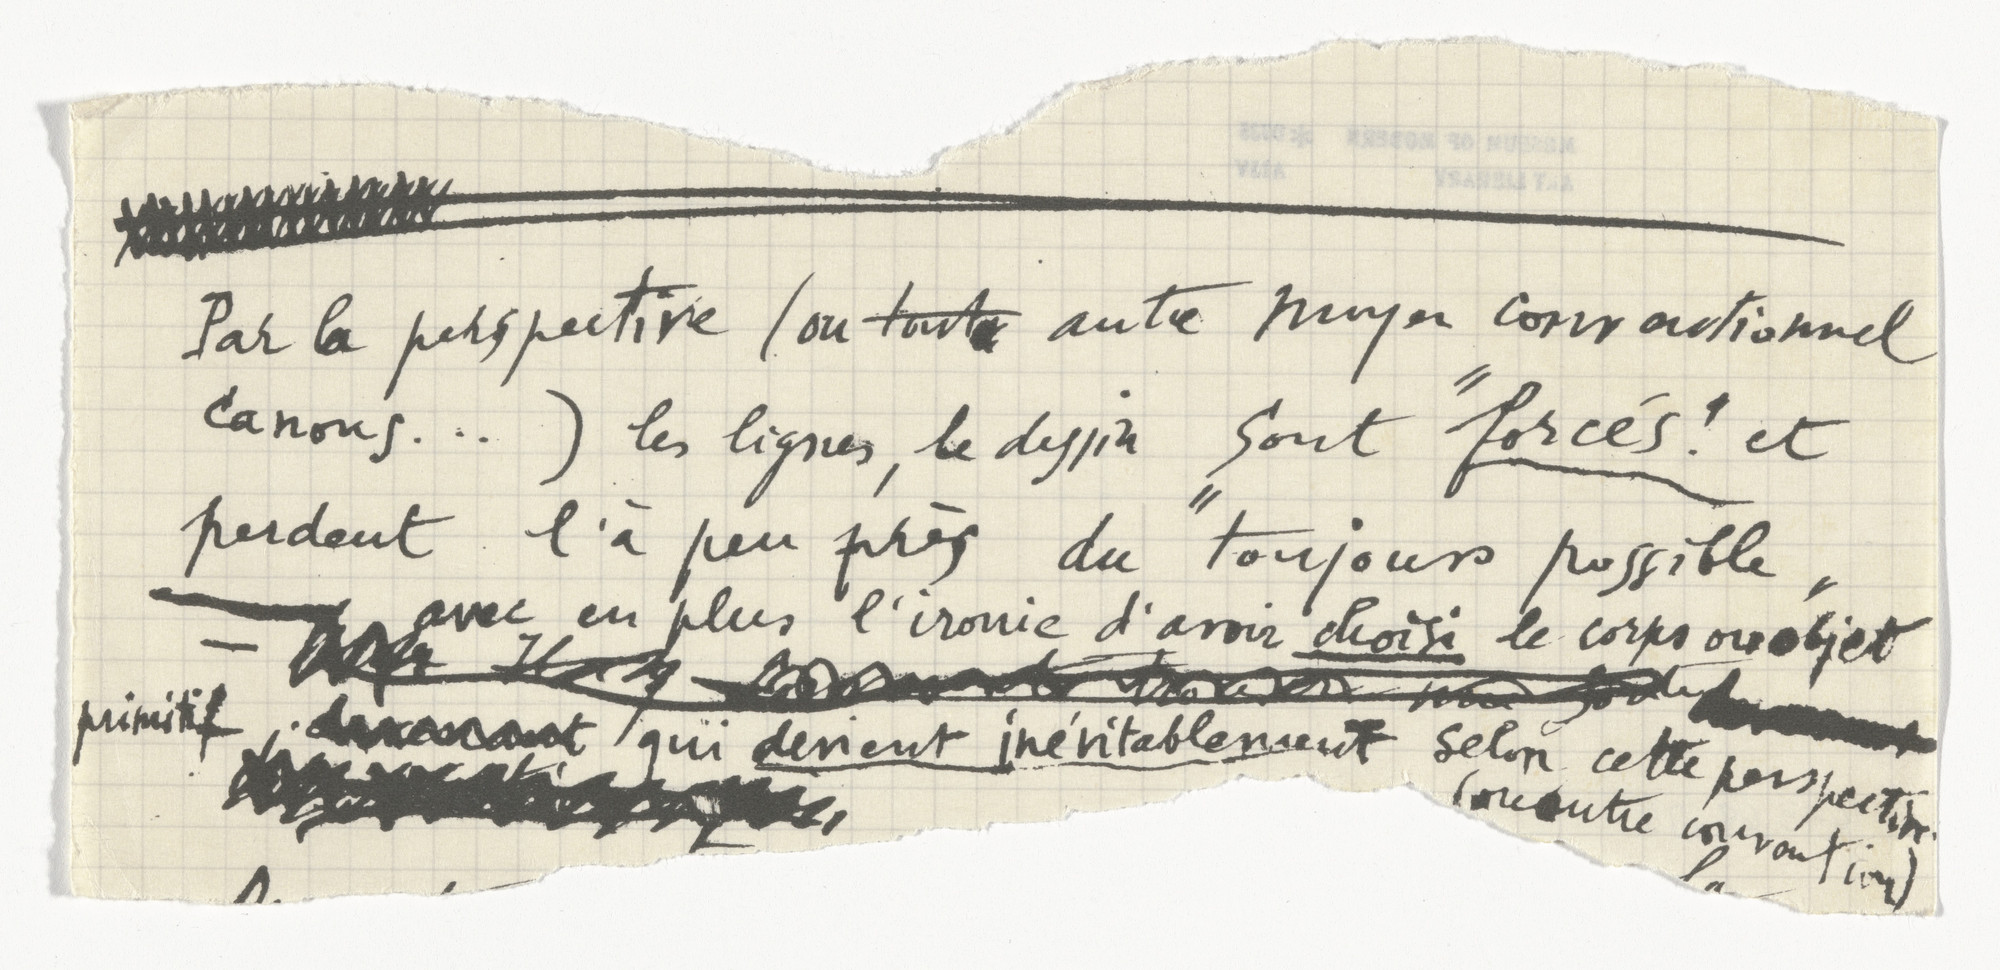 MUSEUM OF MODERN
ART LIBRARY
Par la perspective (ou toute autre moyen conventionnel
canons....) les lignes, le dessin sont "forcés" et
perdent l'à peu près du "toujours possible"
— avec en plus l'ironie d'avoir choisi le corps ou objet
primitif, qui devient inévitablement selon cette perspective
(ou autre convention)